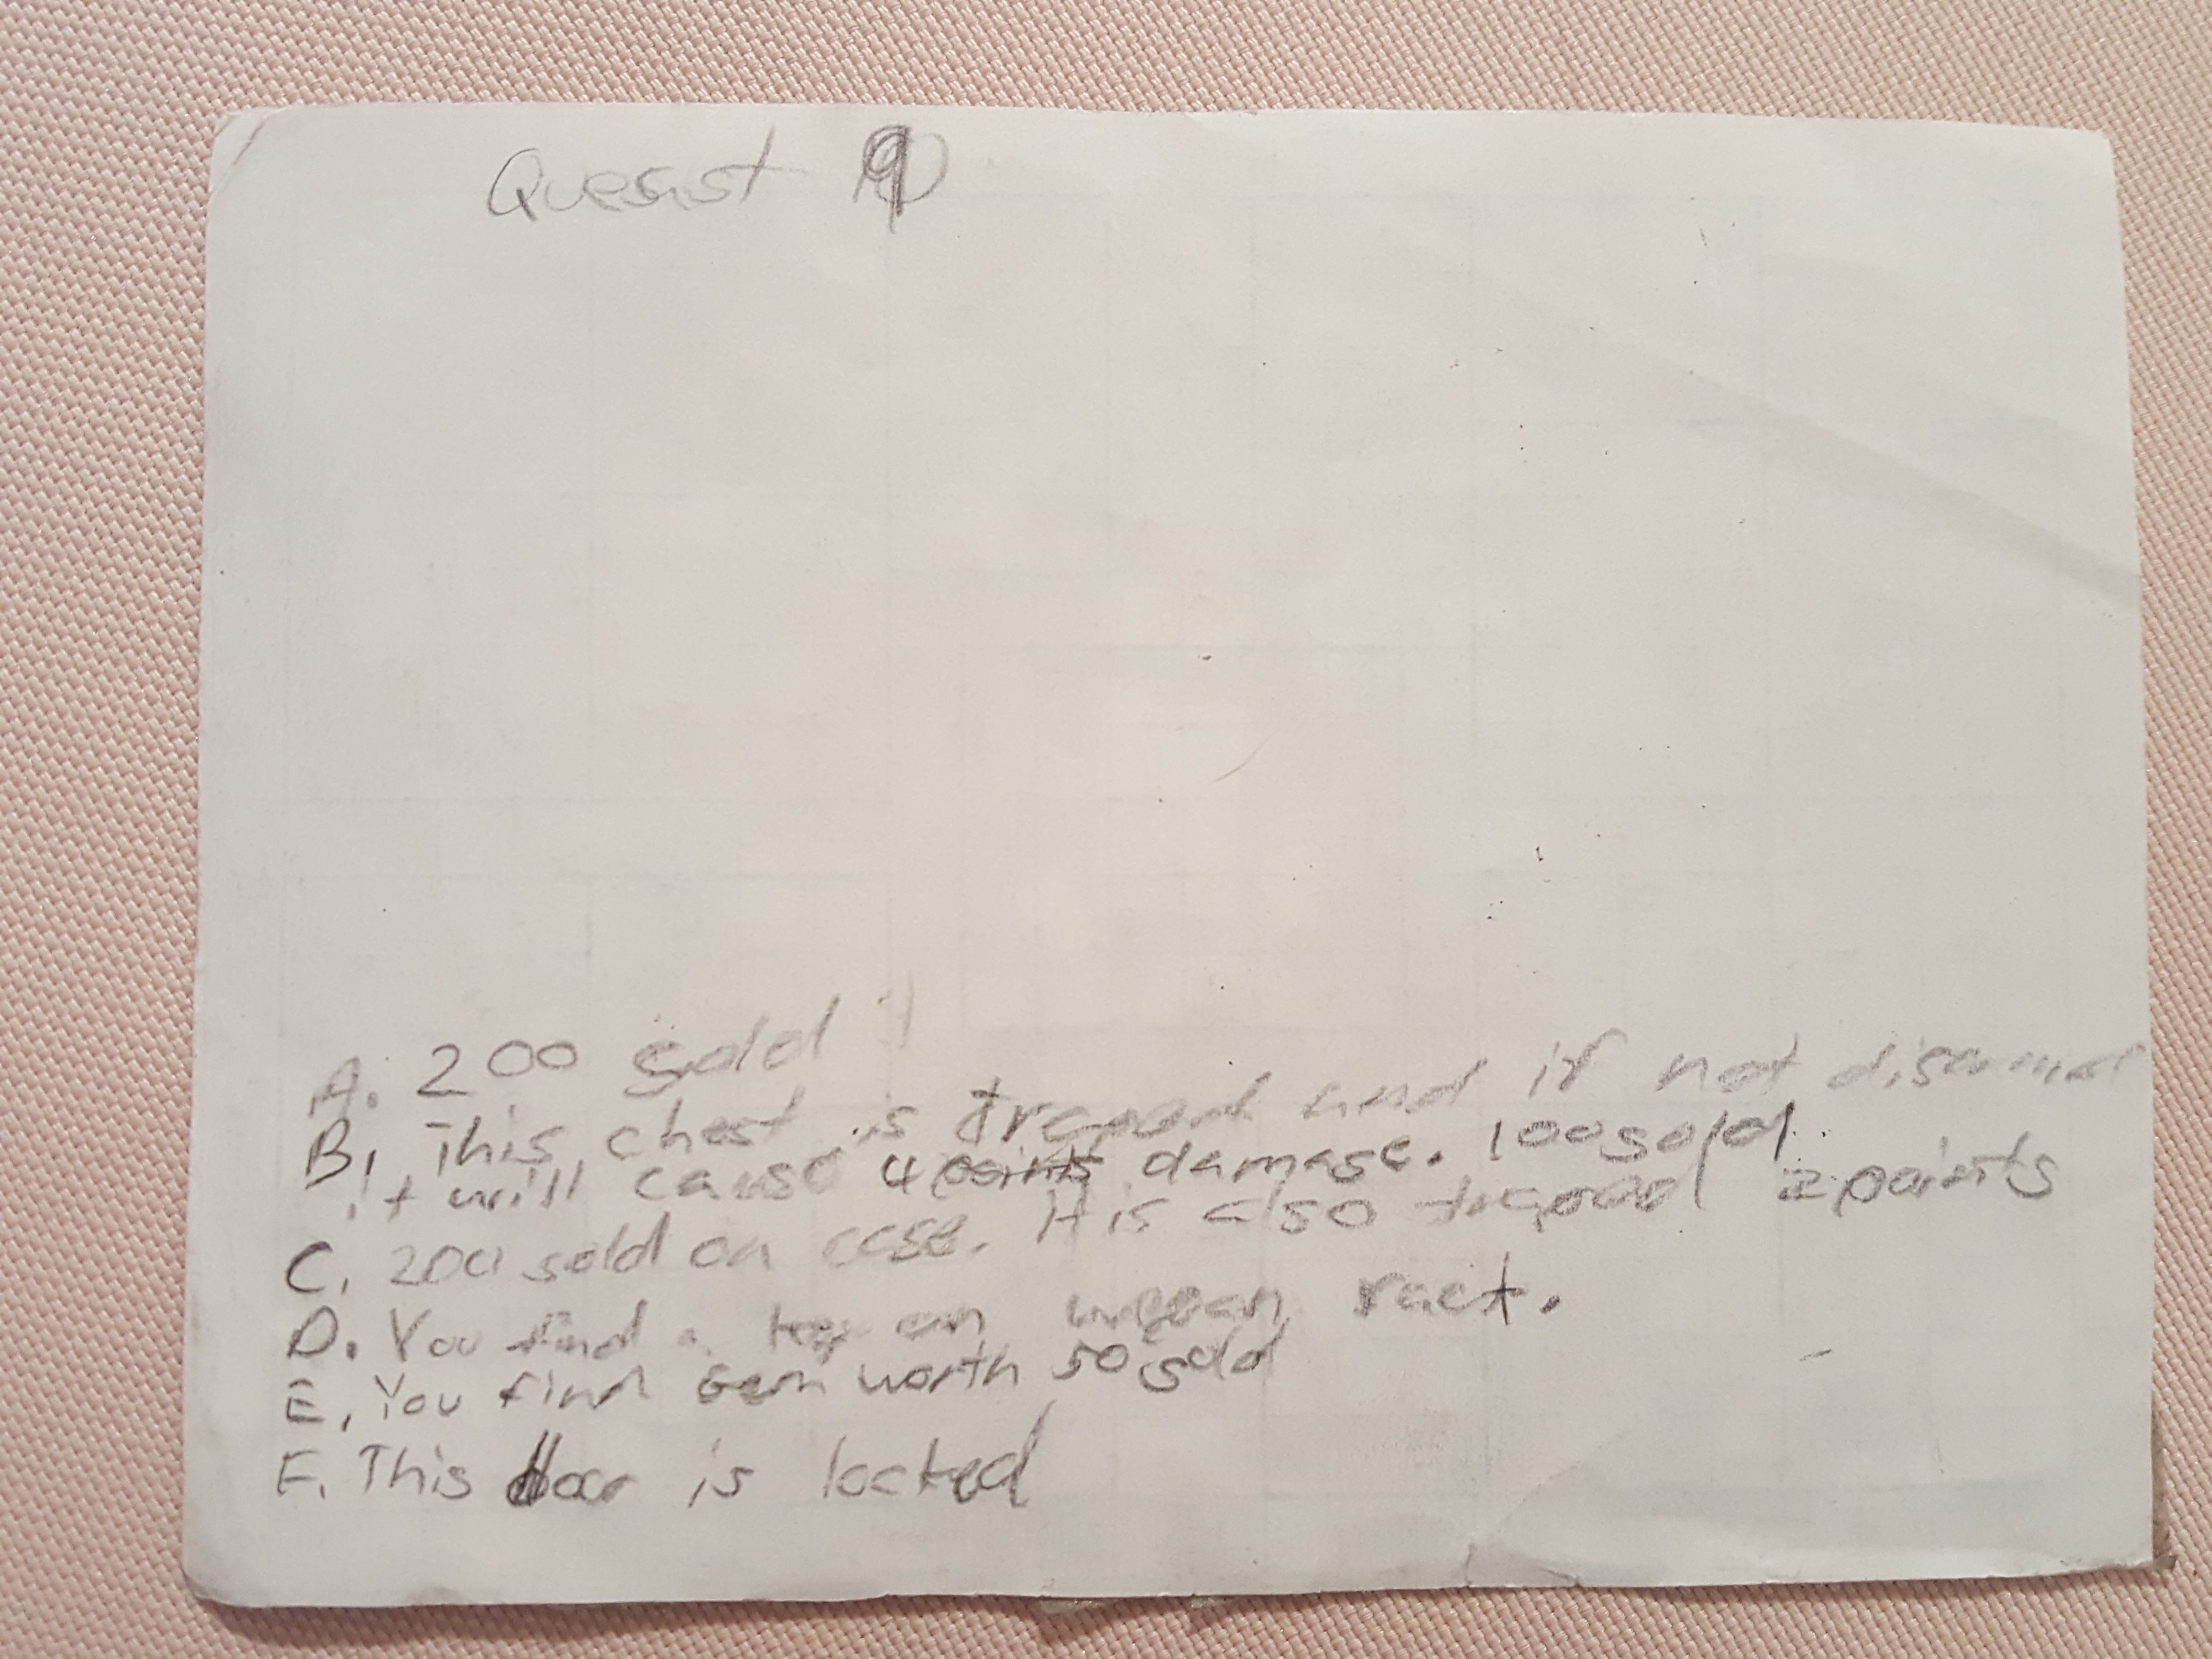 Quesist 9
A. 200 gold
B. This chest is traped and if not disarmed
it will cause 4 points damage. 100 gold.
C. 200 gold on case. It is also traped 2 points
D. You find a key on weapan rack.
E. You find Gem worth 50 gold
F. This door is locked